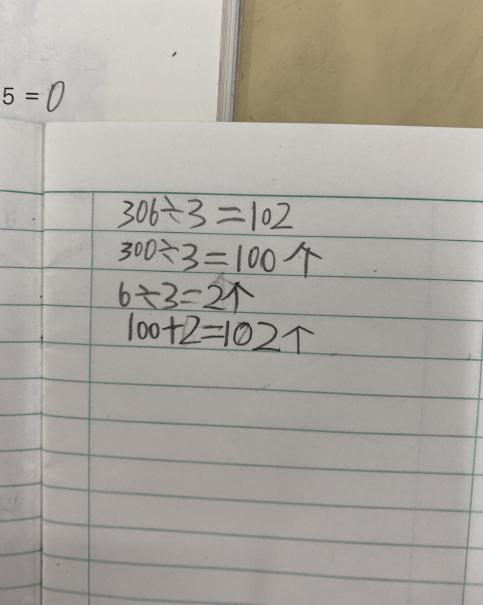 5 = 0
306÷3=102
300÷3=100个
6÷3=2个
100+2=102个